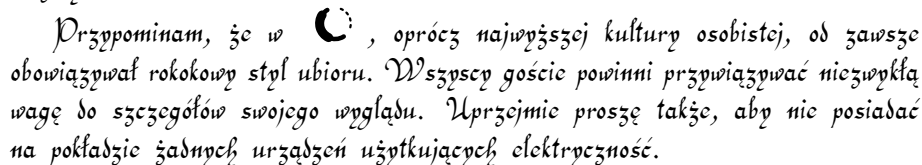 Przypominam, że w , oprócz najwyższej kultury osobistej, od zawsze
obowiązywał rokokowy styl ubioru. Wszyscy goście powinni przywiązywać niezwykłą
wagę do szczegółów swojego wyglądu. Uprzejmie proszę także, aby nie posiadać
na pokładzie żadnych urządzeń użytkujących elektryczność.